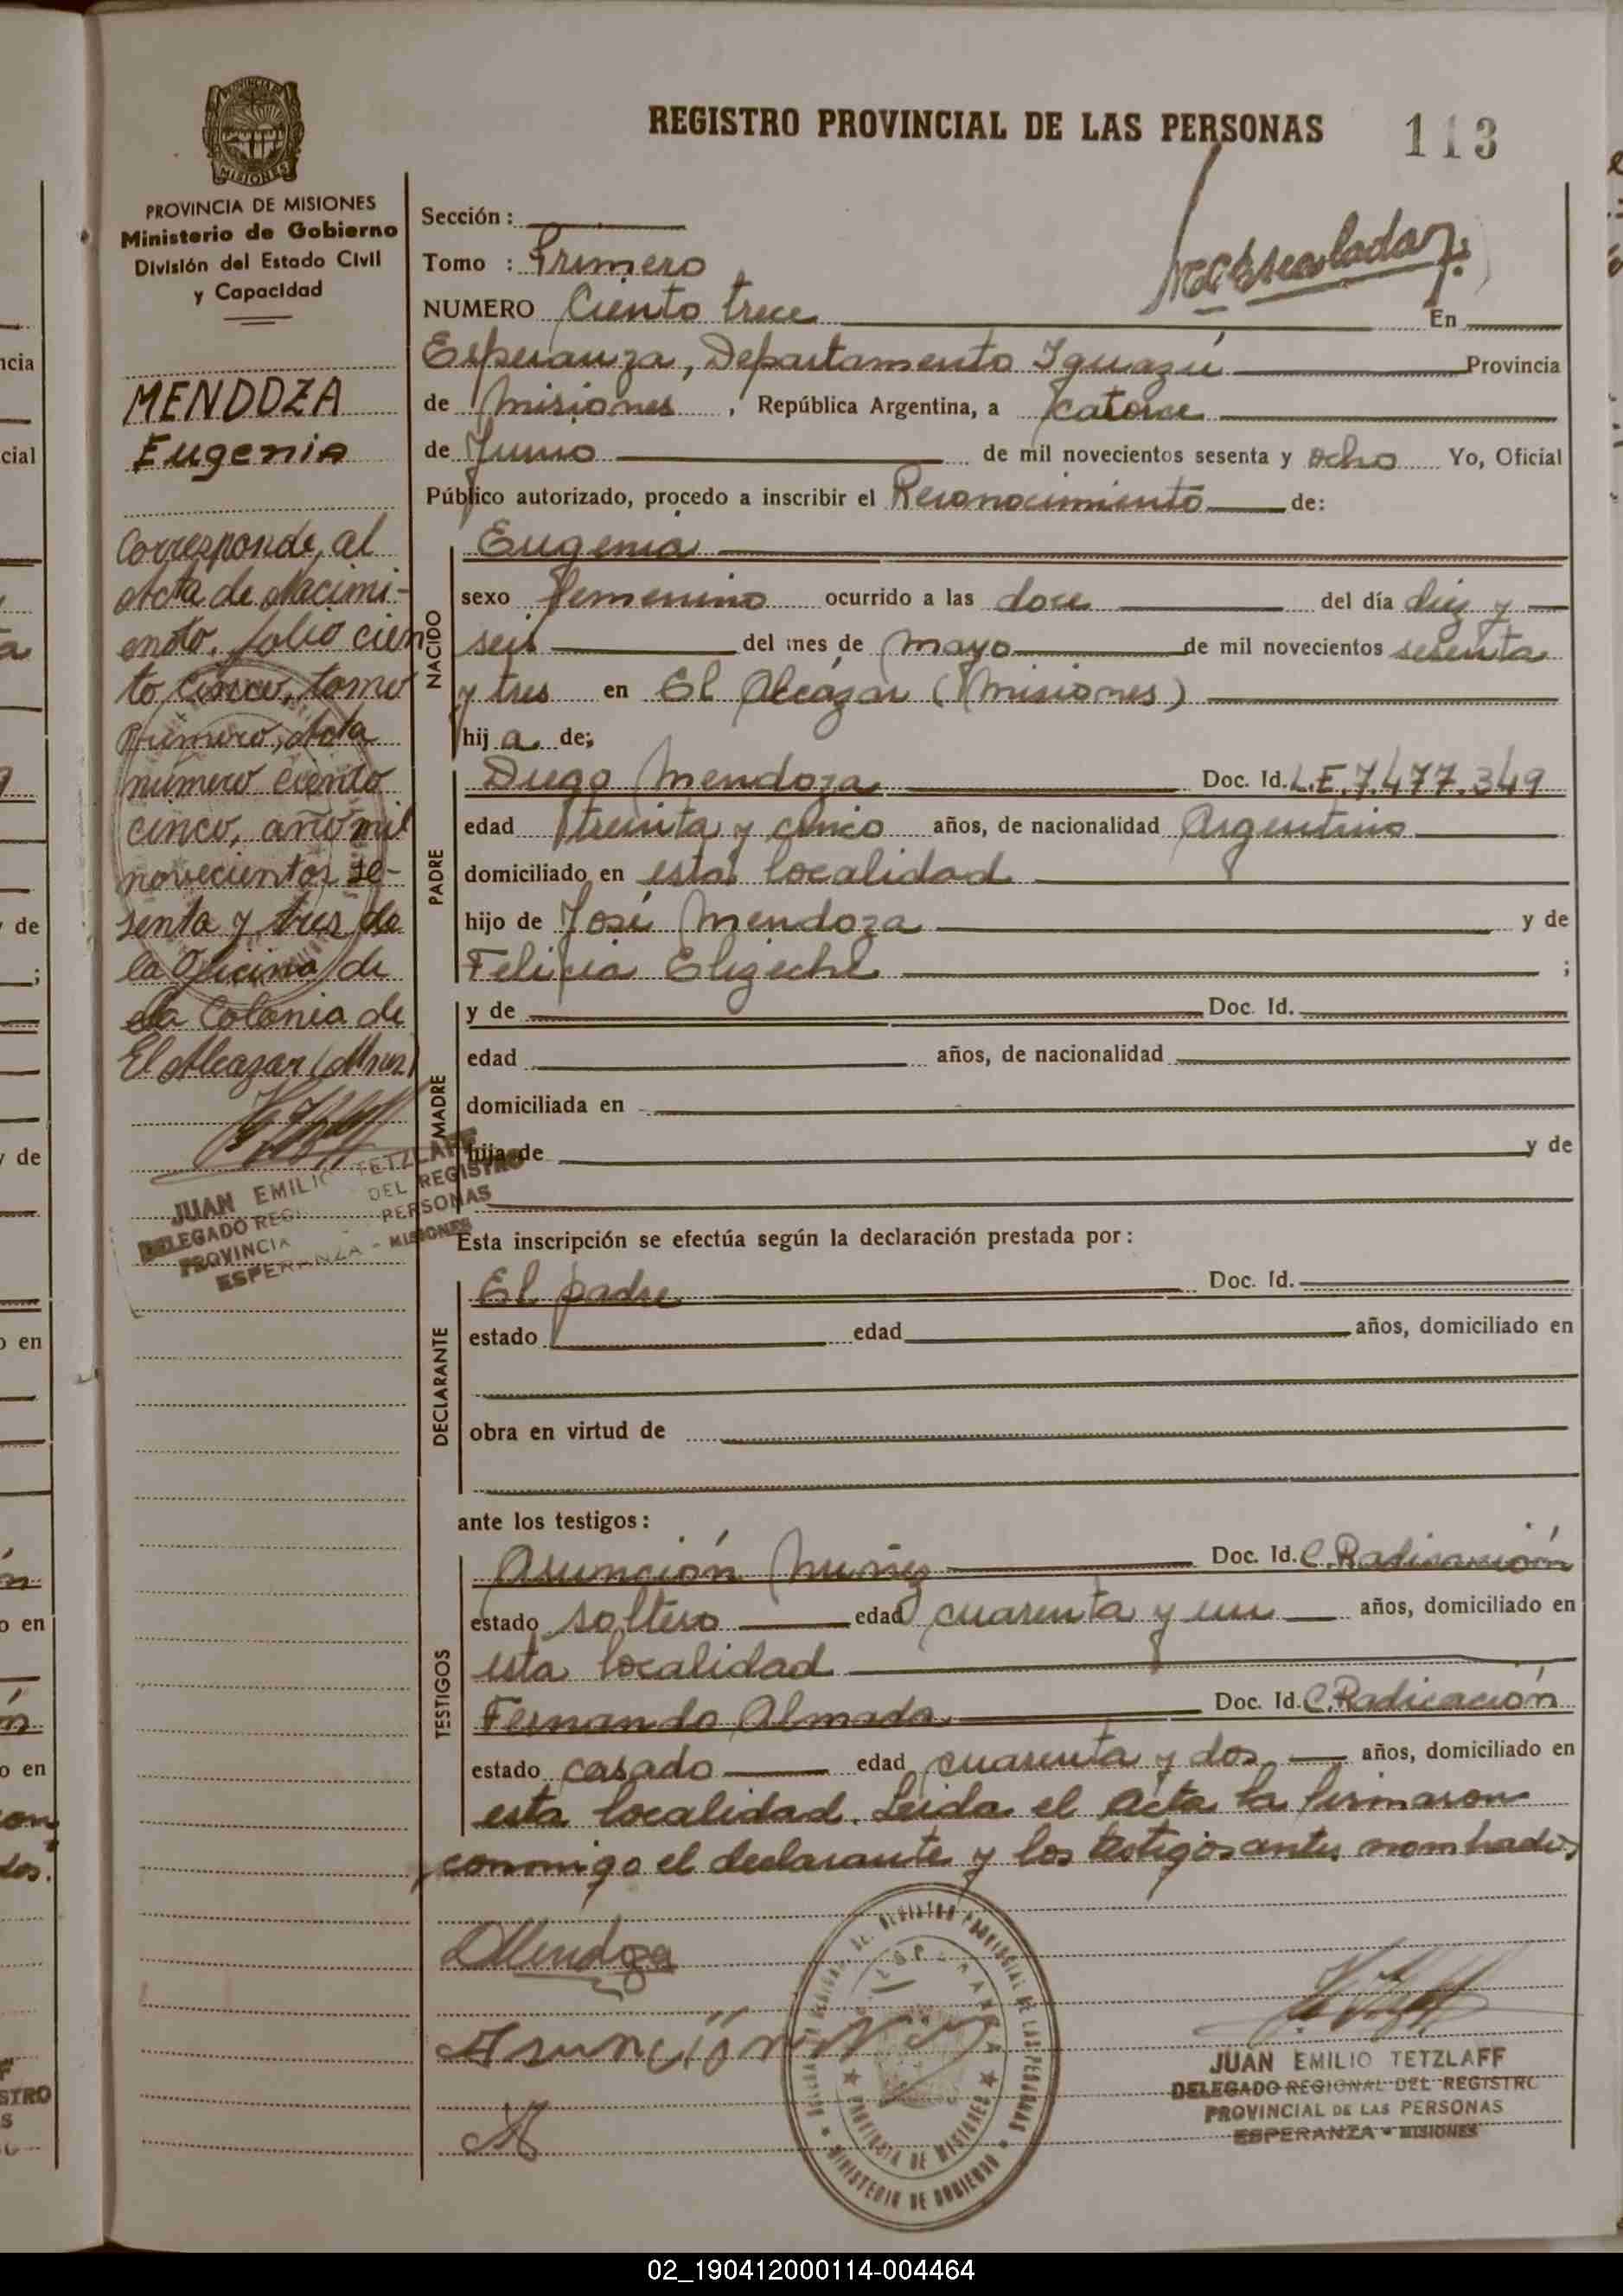 REGISTRO PROVINCIAL DE LAS PERSONAS 113
PROVINCIA DE MISIONES
Ministerio de Gobierno
División del Estado Civil
y Capacidad
MENDOZA
Eugenia
Corresponde al
Acta de Nacimi-
ento, folio cien
to cinco, tomo
Primero, Acta
número ciento
cinco, año mil
novecientos se-
senta y tres de
la Oficina de
la Colonia de
El Alcazar (Mnes)
JUAN EMILIO TETZLAFF
DELEGADO REGI DEL REGISTRO
PROVINCIA PERSONAS
ESPERANZA - MISIONES
Sección :
Tomo : Primero
NUMERO Ciento trece En
Esperanza, Departamento Iguazú Provincia
de Misiones, República Argentina, a catorce
de Junio de mil novecientos sesenta y ocho Yo, Oficial
Público autorizado, procedo a inscribir el Reconocimiento de:
NACIDO
Eugenia
sexo femenino ocurrido a las doce del día diez y
seis del mes de mayo de mil novecientos sesenta
y tres en El Alcázar (Misiones)
hij a de;
PADRE
Diego Mendoza Doc. Id. L.E. 7.477.349
edad treinta y cinco años, de nacionalidad Argentino
domiciliado en esta localidad
hijo de José Mendoza y de
Felicia Elizeche ;
MADRE
y de Doc. Id.
edad años, de nacionalidad
domiciliada en
hija de y de
Esta inscripción se efectúa según la declaración prestada por :
DECLARANTE
El padre Doc. Id.
estado edad años, domiciliado en
obra en virtud de
ante los testigos :
TESTIGOS
Asunción Nuñez Doc. Id. C. Radicación
estado soltero edad cuarenta y un años, domiciliado en
esta localidad
Fernando Almada Doc. Id. C. Radicación
estado casado edad cuarenta y dos años, domiciliado en
esta localidad. Leida el Acta la firmaron
conmigo el declarante y los testigos antes nombrados
DMendoza
Asunción
JUAN EMILIO TETZLAFF
DELEGADO REGIONAL DEL REGISTRO
PROVINCIAL DE LAS PERSONAS
ESPERANZA - MISIONES
02_190412000114-004464